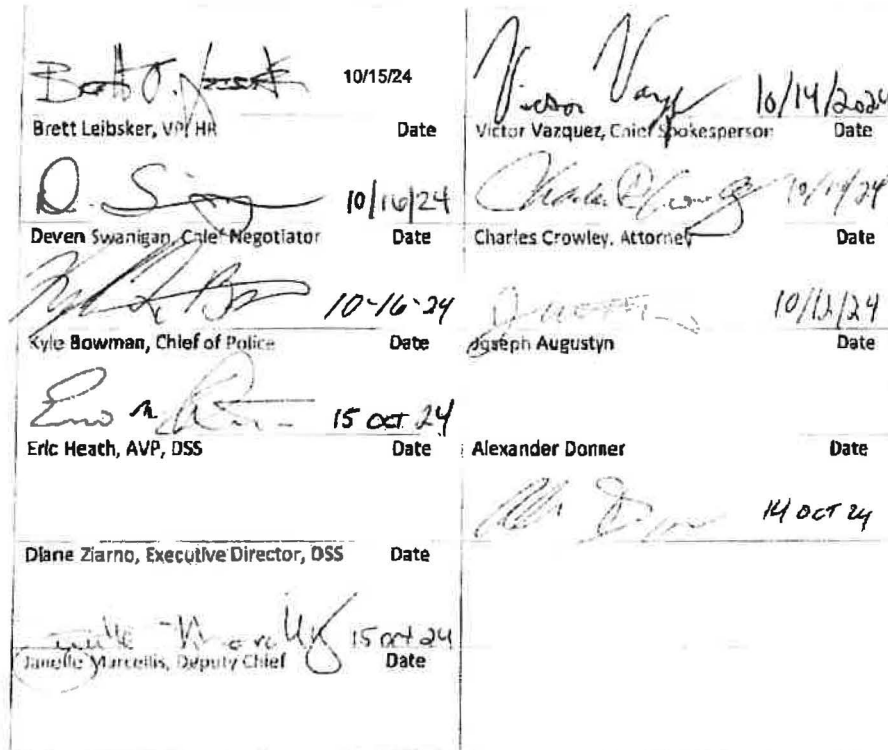 10/15/24
Brett Leibsker, VP, HR Date
D. 10/16/24
Deven Swanigan, Chief Negotiator Date
10-16-24
Kyle Bowman, Chief of Police Date
15 OCT 24
Eric Heath, AVP, DSS Date
Diane Ziarno, Executive Director, DSS Date
15 oct 24
Janelle Marcellis, Deputy Chief Date
Victor 10/14/2024
Victor Vazquez, Chief Spokesperson Date
Charles Crowley, Attorney Date
Joseph Augustyn Date
Alexander Donner Date
14 OCT 24